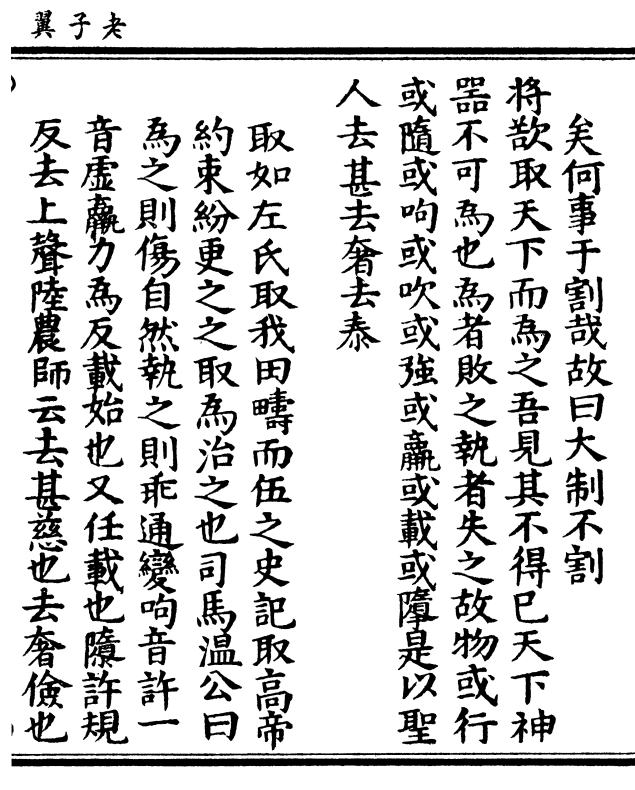 老子翼
矣何事于割哉故曰大制不割
将欿取天下而為之吾見其不得已天下神
噐不可為也為者敗之執者失之故物或行
或隨或呴或吹或強或羸或載或隳是以聖
人去甚去奢去泰
取如左氏取我田疇而伍之史記取高帝
約束紛更之之取為治之也司馬溫公曰
為之則傷自然執之則乖通變呴音許一
音虛羸力為反載始也又任載也隳許規
反去上聲陸農師云去甚慈也去奢儉也